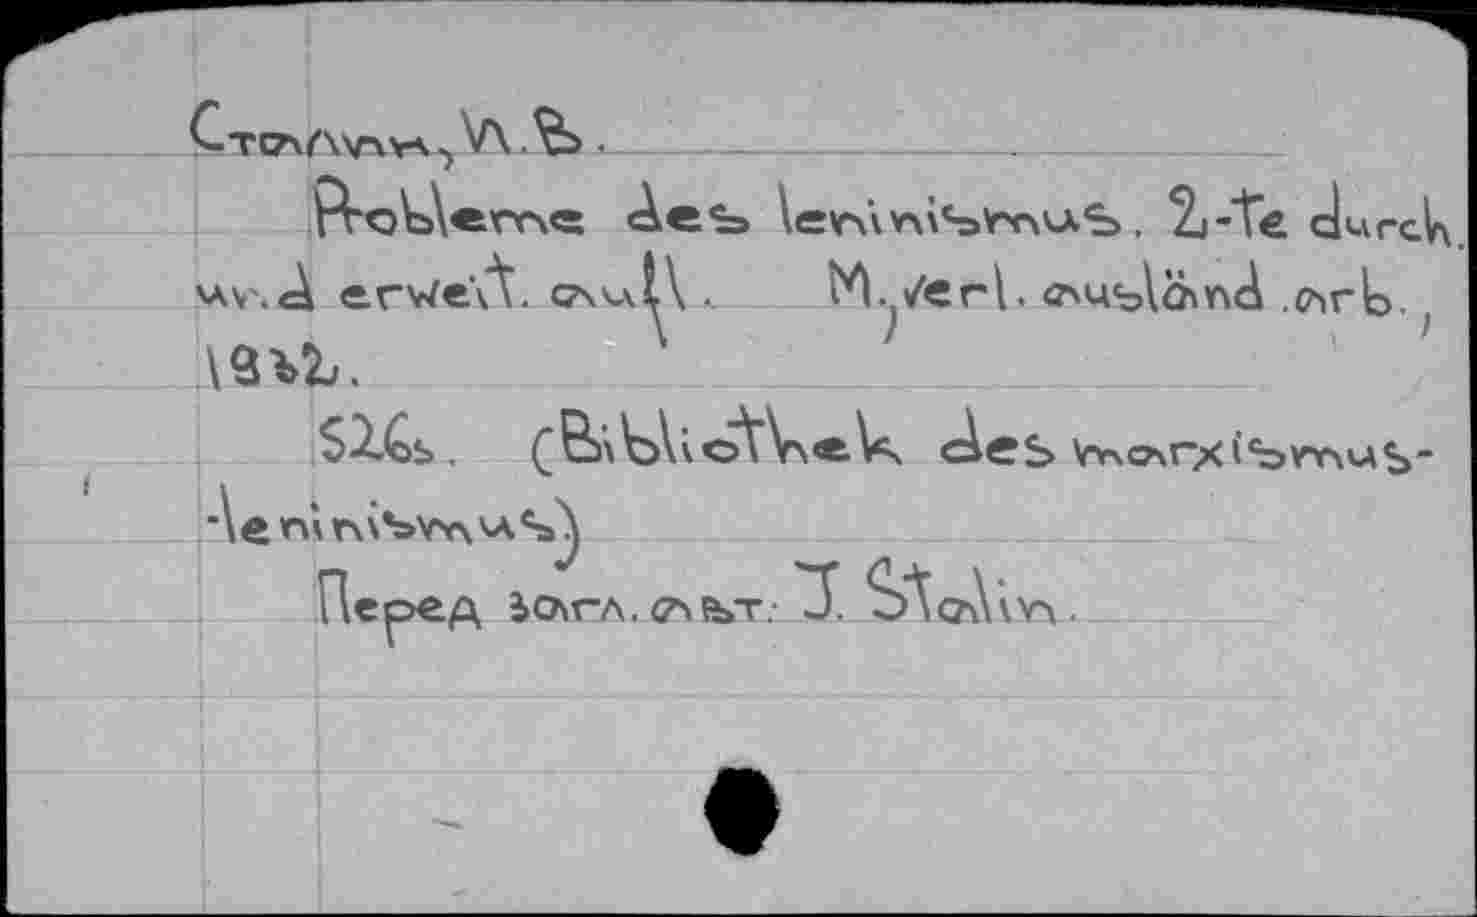 Сталин, И.В.
Probleme des leninismus. 2-te durch.
un.d erweit. aufl. M., Verl. ausländ. arb.,
1932.
526s. (Bibliothek des marxismus-
-leninismus.)
Перед загл. авт.: J. Stalin.